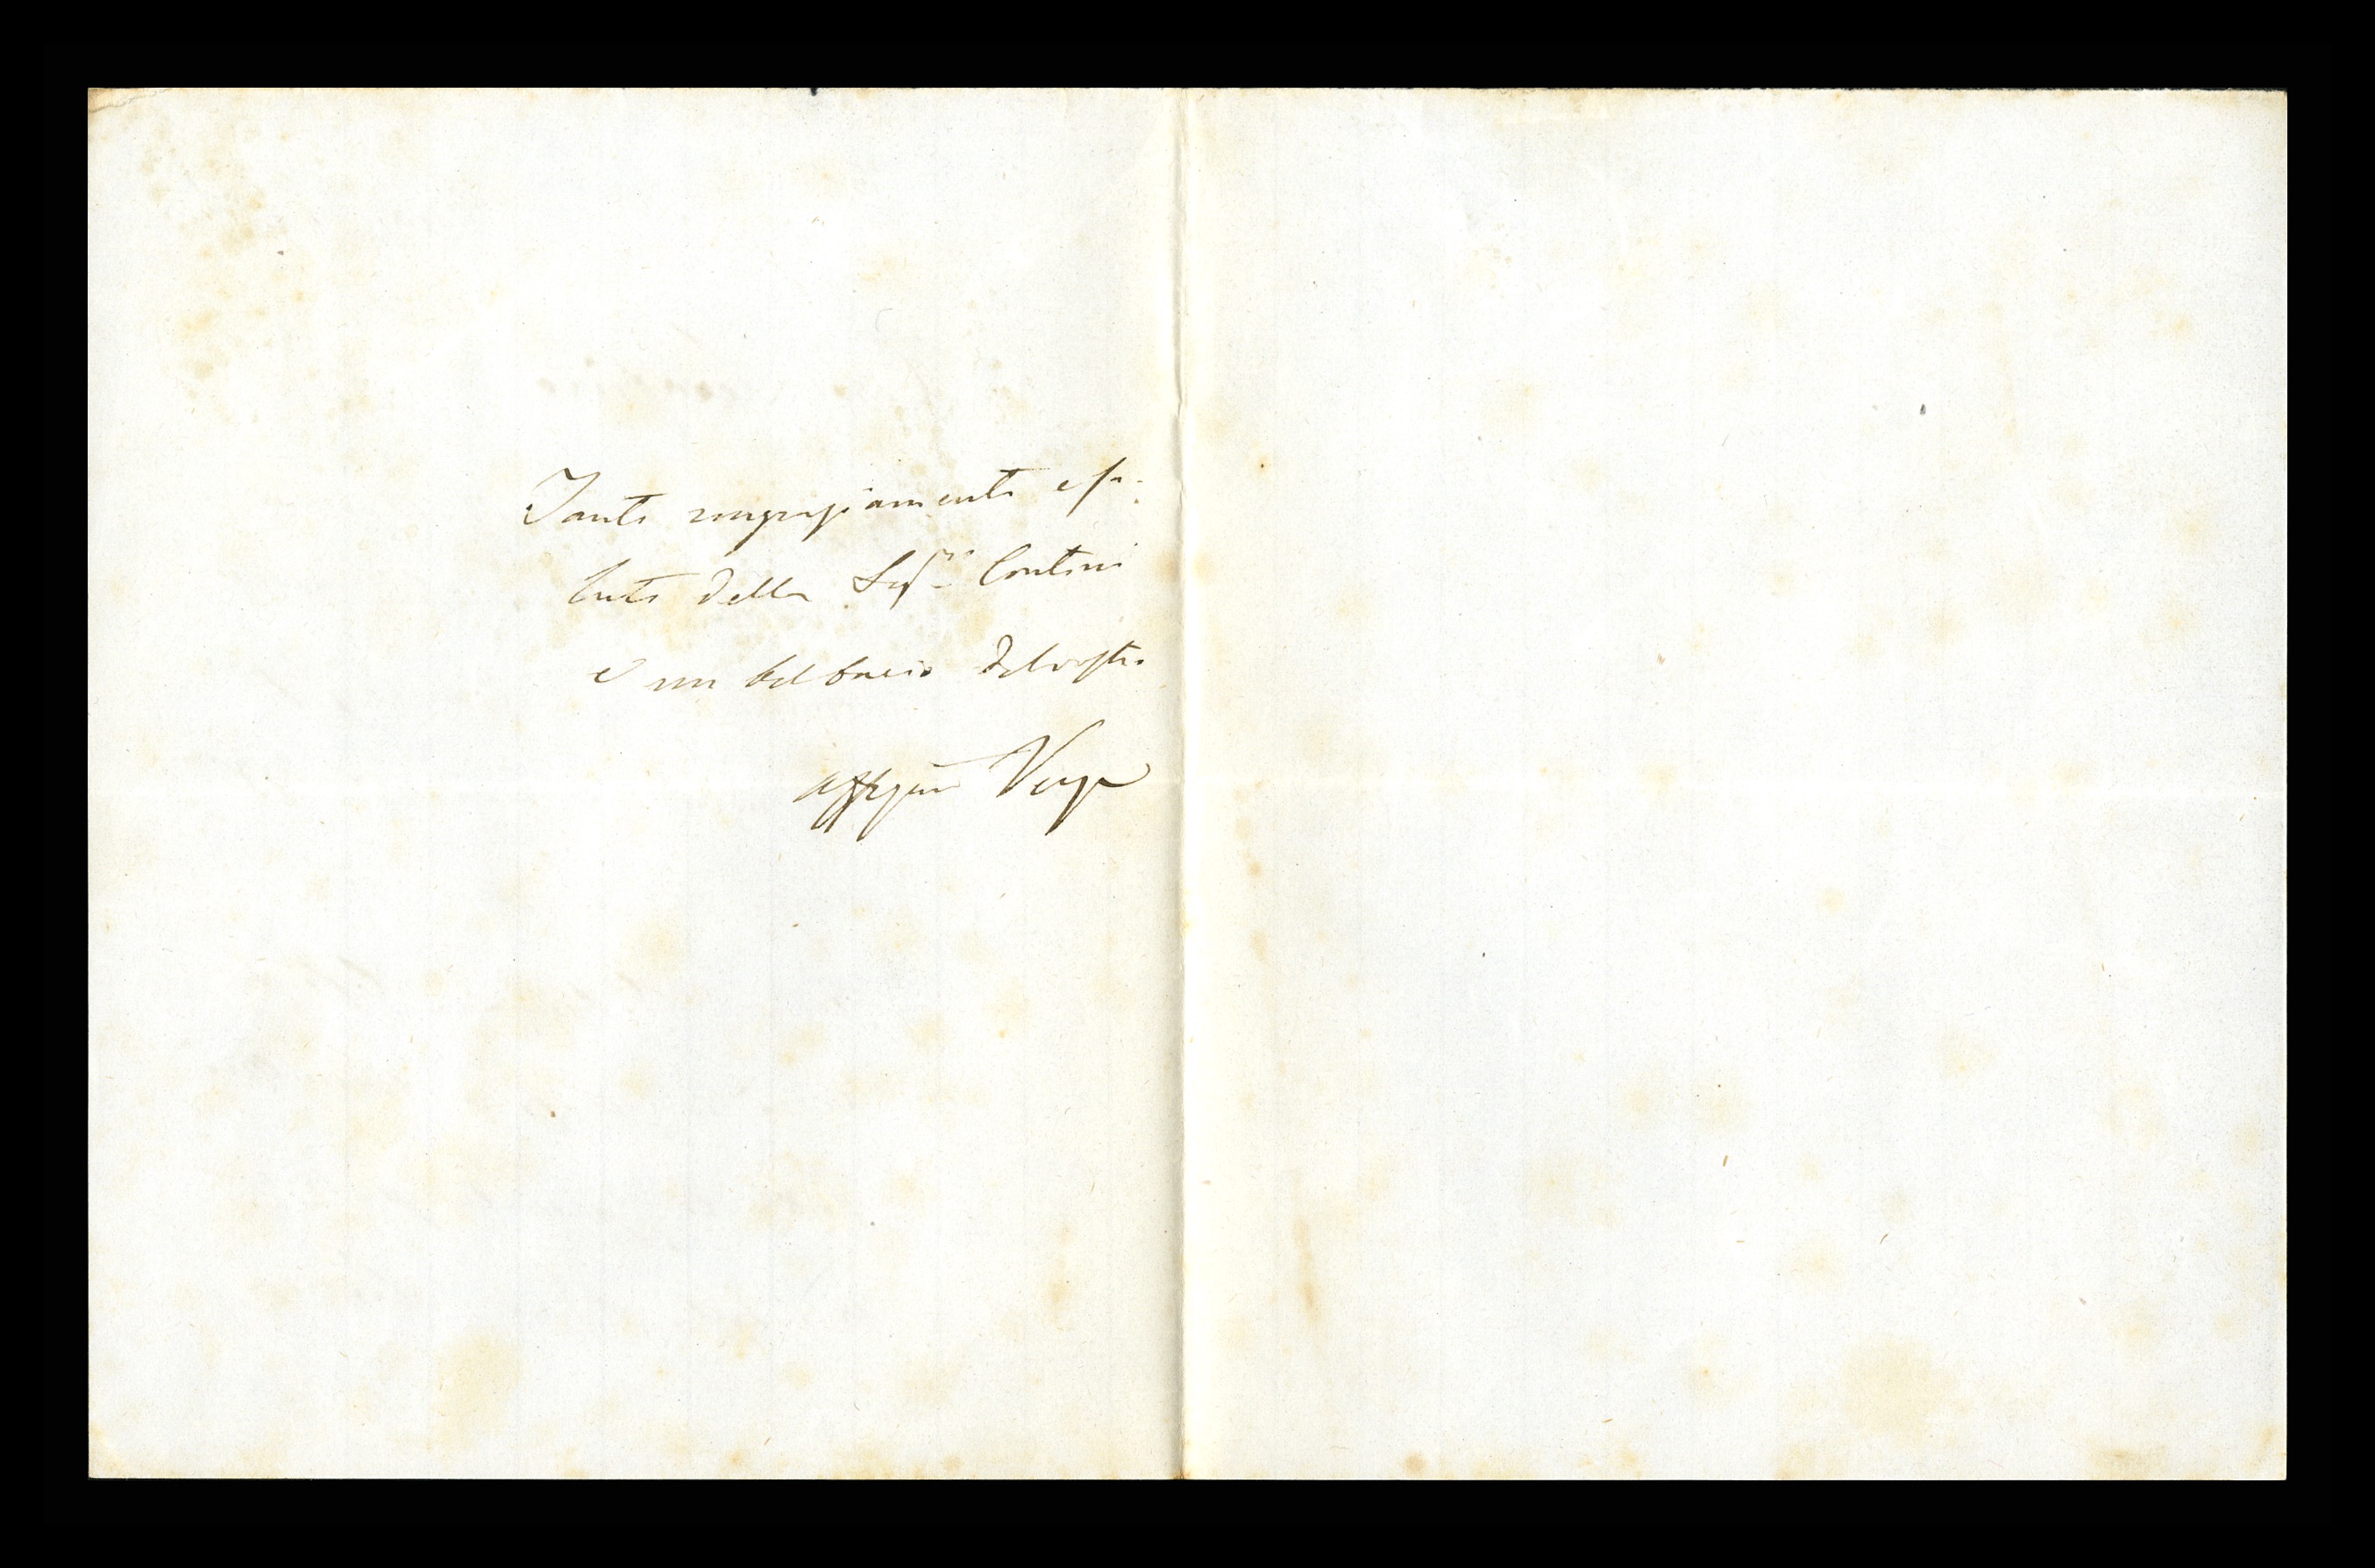 Tanti ringraziamenti e sa-
luti della Sigra Contini
e un bel bacio del vostro
affezmo Verga